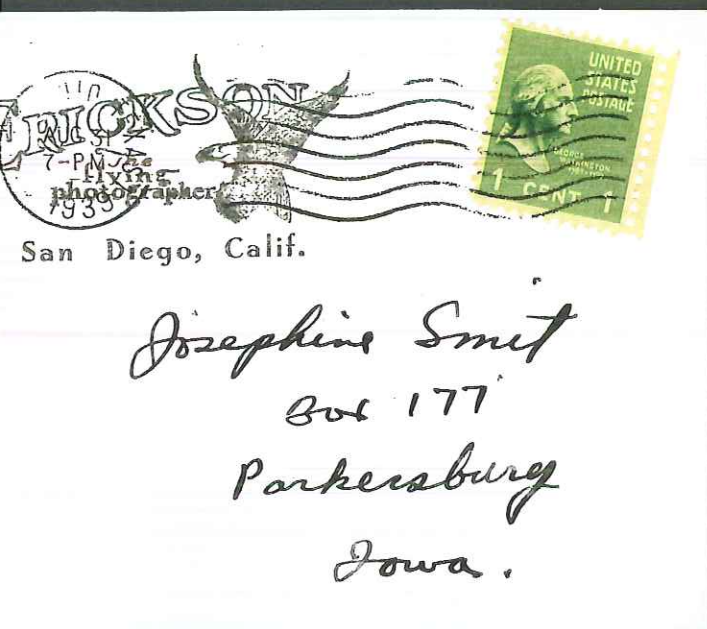 ERICKSON
AUG 31
7-PM
the
flying
photographer
1939
San Diego, Calif.
UNITED
STATES
POSTAGE
GEORGE
WASHINGTON
1 CENT 1
Josephine Smit
Box 177
Parkersburg
Iowa.